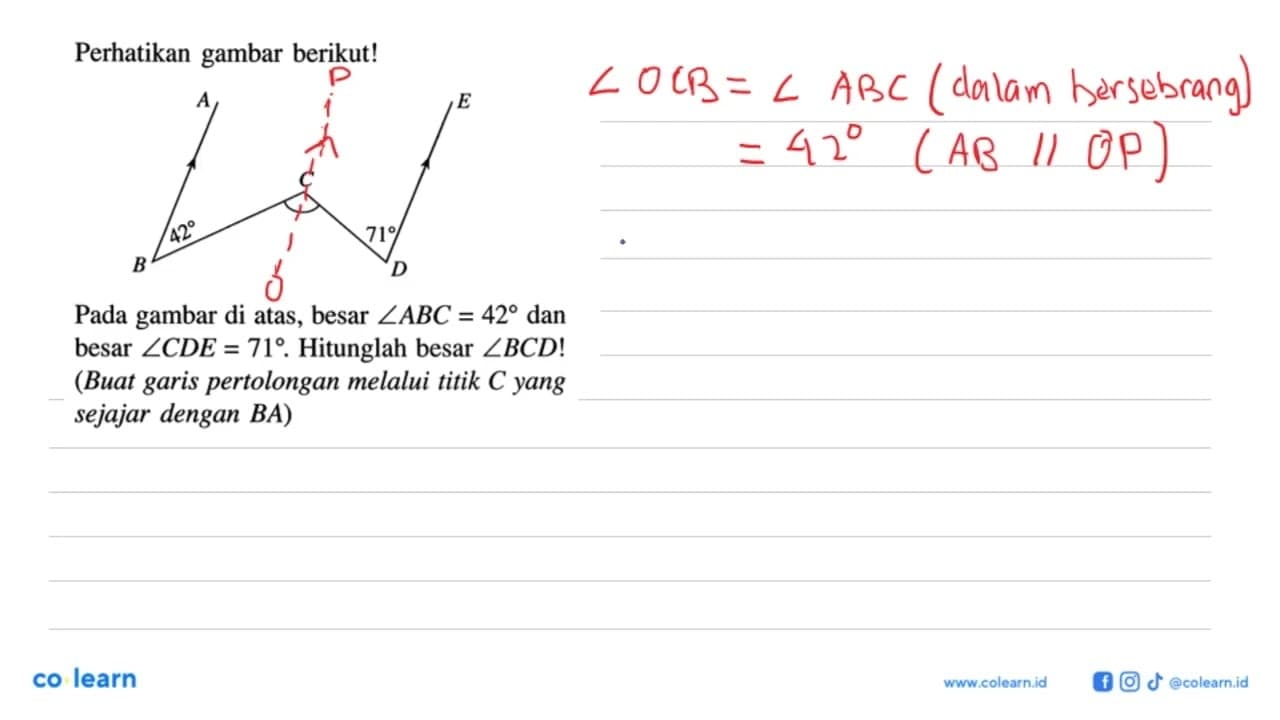 Perhatikan gambar berikut!
P
A
E
C
42°
71°
B
D
O
∠OCB = ∠ABC (dalam bersebrang)
= 42° (AB // OP)
Pada gambar di atas, besar ∠ABC = 42° dan
besar ∠CDE = 71°. Hitunglah besar ∠BCD!
(Buat garis pertolongan melalui titik C yang
sejajar dengan BA)
co learn
www.colearn.id
@colearn.id